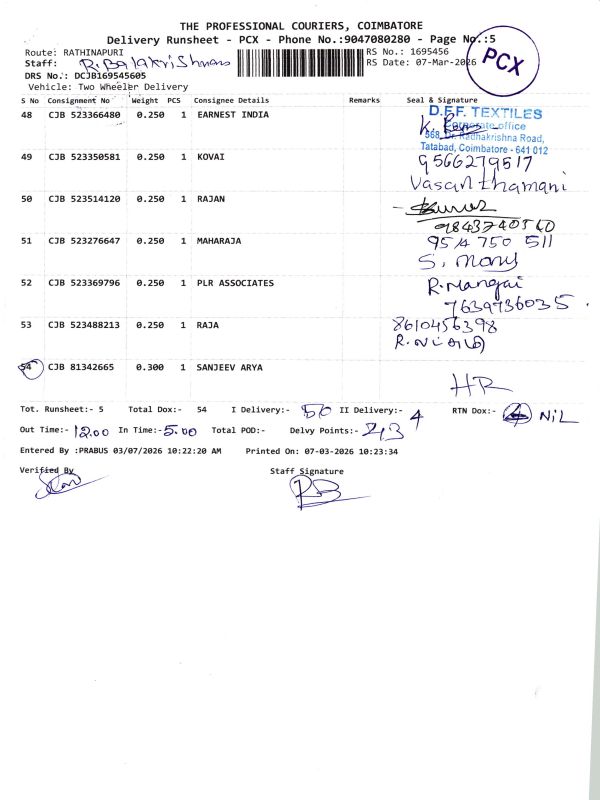 THE PROFESSIONAL COURIERS, COIMBATORE
Delivery Runsheet - PCX - Phone No.:9047080280 - Page No.:5
Route: RATHINAPURI
RS No.: 1695456
Staff: R. Balakrishnan
RS Date: 07-Mar-2026
PCX
DRS No.: DCJB169545605
Vehicle: Two Wheeler Delivery
S No Consignment No Weight PCS Consignee Details Remarks Seal & Signature
48 CJB 523366480 0.250 1 EARNEST INDIA
D.F.F. TEXTILES
Corporate office
568, Dr. Radhakrishna Road,
Tatabad, Coimbatore - 641 012
49 CJB 350581 0.250 1 KOVAI
9566279517
Vasanthamani
50 CJB 523514120 0.250 1 RAJAN
9843740540
51 CJB 523276647 0.250 1 MAHARAJA
9514 750 511
S. Mony
52 CJB 523369796 0.250 1 PLR ASSOCIATES
R. Mangai
7639736035
53 CJB 523488213 0.250 1 RAJA
8610456398
54 CJB 81342665 0.300 1 SANJEEV ARYA
HR
Tot. Runsheet:- 5 Total Dox:- 54 I Delivery:- 50 II Delivery:- 4 RTN Dox:- NiL
Out Time:- 12.00 In Time:- 5.00 Total POD:- Delvy Points:- 43
Entered By :PRABUS 03/07/2026 10:22:20 AM Printed On: 07-03-2026 10:23:34
Verified By Staff Signature
RB